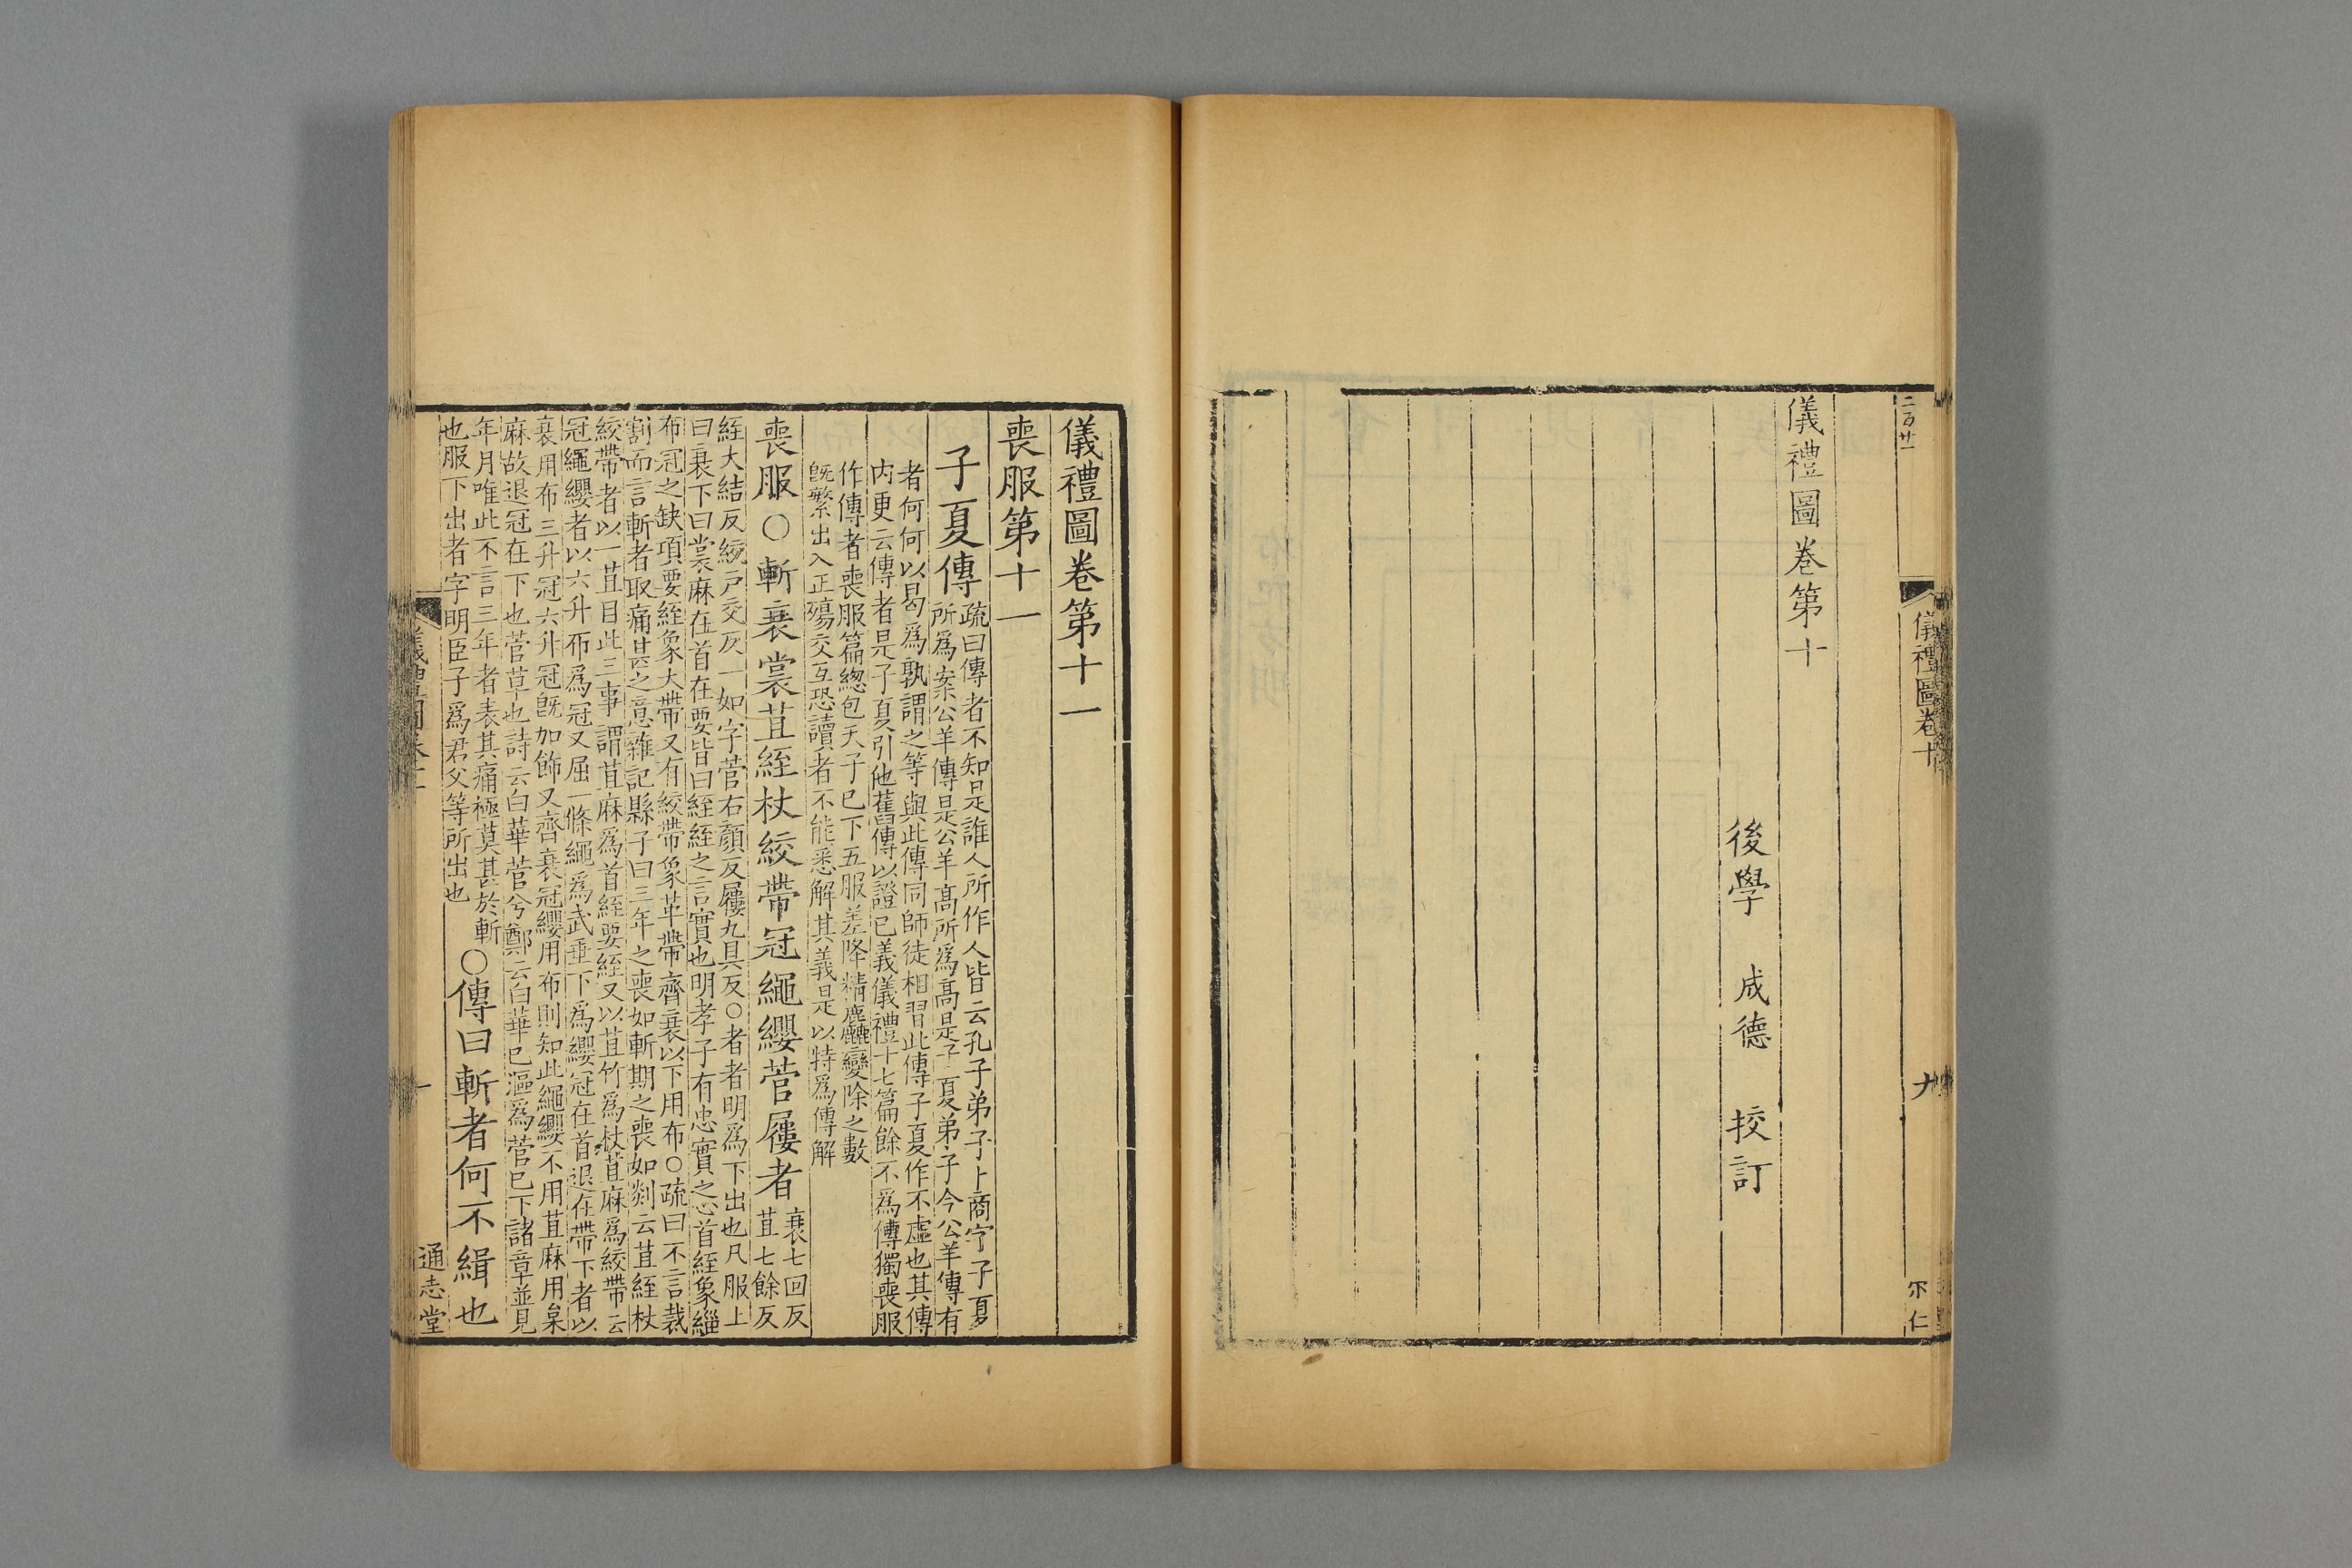 二百廿一
儀禮圖卷十
九
尒仁
儀禮圖卷第十
後學 成德 挍訂
儀禮圖卷第十一
喪服第十一
子夏傳
疏曰傳者不知是誰人所作人皆云孔子弟子卜商字子夏
所爲案公羊傳是公羊高所爲高是子夏弟子今公羊傳有
者何何以曷爲孰謂之等與此傳同師徒相習此傳子夏作不虛也其傳
内更云傳者是子夏引他舊傳以證已義儀禮十七篇餘不爲傳獨喪服
作傳者喪服篇緫包天子已下五服差降精麤變除之數
旣繁出入正殤交互恐讀者不能悉解其義是以特爲傳解
喪服○斬衰裳苴絰杖絞帶冠繩纓菅屨者
衰七回反
苴七餘反
絰大結反絞戶交反一如字菅右顏反屨九具反○者者明爲下出也凡服上
曰衰下曰裳麻在首在要皆曰絰絰之言實也明孝子有忠實之心首絰象緇
布冠之缺項要絰象大帶又有絞帶象革帶齊衰以下用布○疏曰不言裁
割而言斬者取痛甚之意雜記縣子曰三年之喪如斬期之喪如剡云苴絰杖
絞帶者以一苴目此三事謂苴麻爲首絰要絰又以苴竹爲杖苴麻爲絞帶云
冠繩纓者以六升布爲冠又屈一條繩爲武垂下爲纓冠在首退在帶下者以
衰用布三升冠六升冠旣加飾又齊衰冠纓用布則知此繩纓不用苴麻用枲
麻故退冠在下也菅草也詩云白華菅兮鄭云白華已漚爲菅已下諸章並見
年月唯此不言三年者表其痛極莫甚於斬
也服下出者字明臣子爲君父等所出也
○傳曰斬者何不緝也
儀禮圖卷十一
一
通志堂